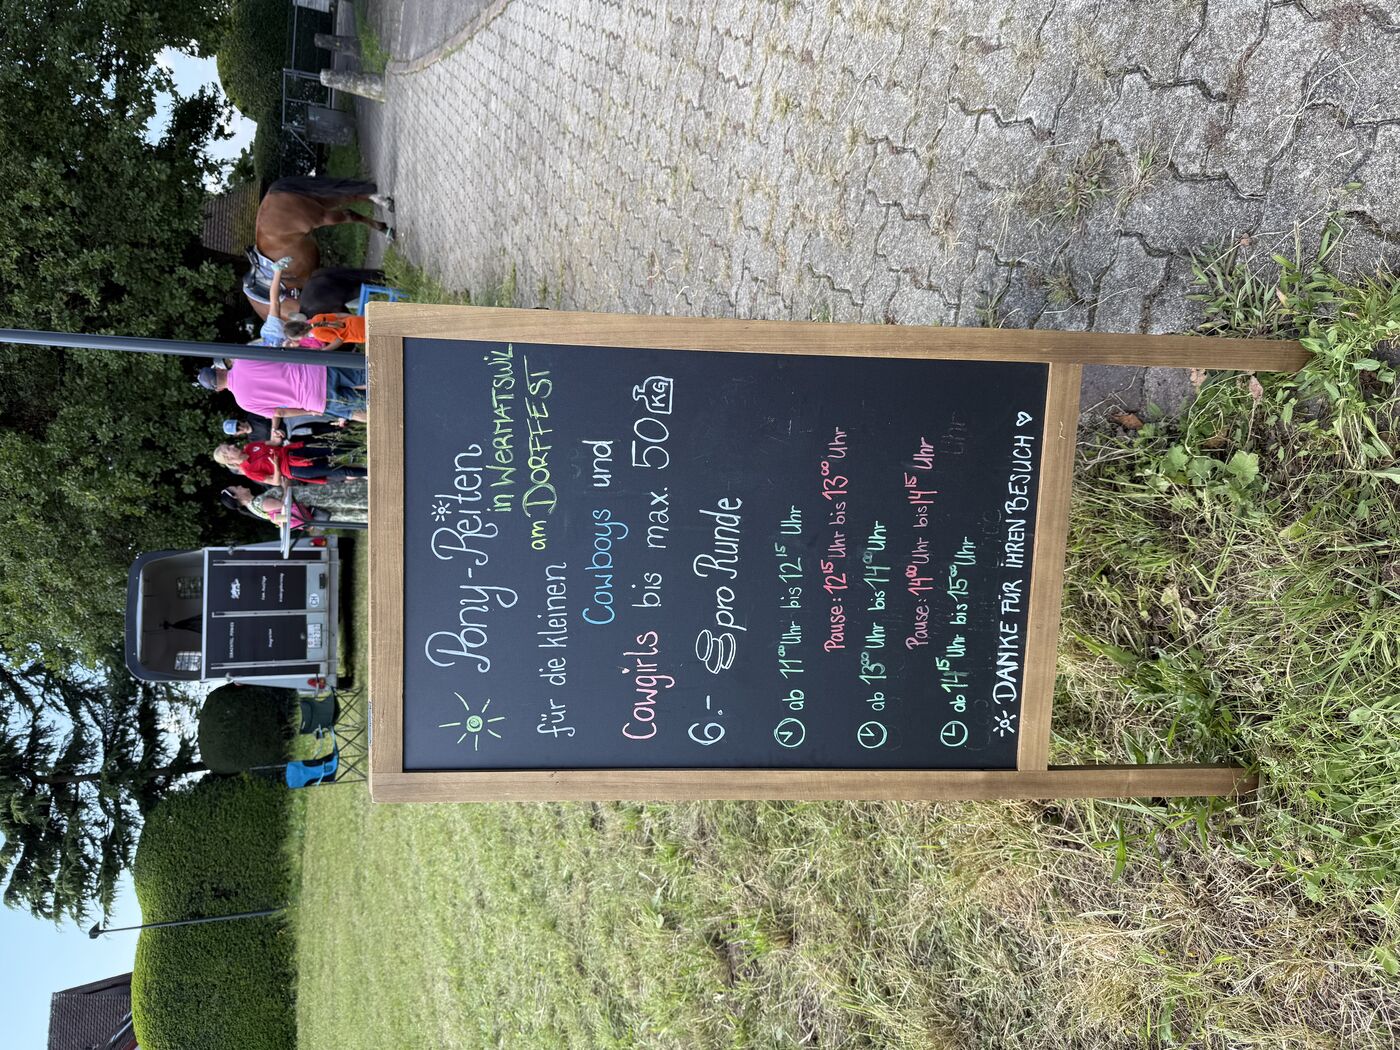 Pony-Reiten
in WERMATSWIL
am DORFFEST
für die kleinen
Cowboys und
Cowgirls bis max. 50 KG
6.- pro Runde
ab 11⁰⁰ Uhr bis 12¹⁵ Uhr
Pause: 12¹⁵ Uhr bis 13⁰⁰ Uhr
ab 13⁰⁰ Uhr bis 14⁰⁰ Uhr
Pause: 14⁰⁰ Uhr bis 14¹⁵ Uhr
ab 14¹⁵ Uhr bis 15⁰⁰ Uhr
DANKE FÜR IHREN BESUCH